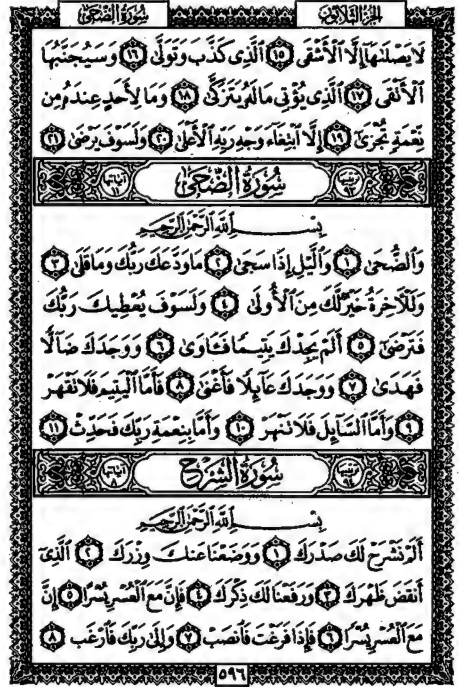 الجزء الثلاثون سورة الضحى
لَا يَصْلَىٰهَآ إِلَّا ٱلْأَشْقَى ١٥ ٱلَّذِى كَذَّبَ وَتَوَلَّىٰ ١٦ وَسَيُجَنَّبُهَا
ٱلْأَتْقَى ١٧ ٱلَّذِى يُؤْتِى مَالَهُۥ يَتَزَكَّىٰ ١٨ وَمَا لِأَحَدٍ عِندَهُۥ مِن
نِّعْمَةٍ تُجْزَىٰٓ ١٩ إِلَّا ٱبْتِغَآءَ وَجْهِ رَبِّهِ ٱلْأَعْلَىٰ ٢٠ وَلَسَوْفَ يَرْضَىٰ ٢١
ترتيبها ٩٣ سُورَةُ الضُّحَىٰ آياتها ١١
بِسْمِ ٱللَّهِ ٱلرَّحْمَٰنِ ٱلرَّحِيمِ
وَٱلضُّحَىٰ ١ وَٱلَّيْلِ إِذَا سَجَىٰ ٢ مَا وَدَّعَكَ رَبُّكَ وَمَا قَلَىٰ ٣
وَلَلْـَٔاخِرَةُ خَيْرٌ لَّكَ مِنَ ٱلْأُولَىٰ ٤ وَلَسَوْفَ يُعْطِيكَ رَبُّكَ
فَتَرْضَىٰٓ ٥ أَلَمْ يَجِدْكَ يَتِيمًا فَـَٔاوَىٰ ٦ وَوَجَدَكَ ضَآلًّا
فَهَدَىٰ ٧ وَوَجَدَكَ عَآئِلًا فَأَغْنَىٰ ٨ فَأَمَّا ٱلْيَتِيمَ فَلَا تَقْهَرْ
٩ وَأَمَّا ٱلسَّآئِلَ فَلَا تَنْهَرْ ١٠ وَأَمَّا بِنِعْمَةِ رَبِّكَ فَحَدِّثْ ١١
ترتيبها ٩٤ سُورَةُ الشَّرْحِ آياتها ٨
بِسْمِ ٱللَّهِ ٱلرَّحْمَٰنِ ٱلرَّحِيمِ
أَلَمْ نَشْرَحْ لَكَ صَدْرَكَ ١ وَوَضَعْنَا عَنكَ وِزْرَكَ ٢ ٱلَّذِىٓ
أَنقَضَ ظَهْرَكَ ٣ وَرَفَعْنَا لَكَ ذِكْرَكَ ٤ فَإِنَّ مَعَ ٱلْعُسْرِ يُسْرًا ٥ إِنَّ
مَعَ ٱلْعُسْرِ يُسْرًا ٦ فَإِذَا فَرَغْتَ فَٱنصَبْ ٧ وَإِلَىٰ رَبِّكَ فَٱرْغَب ٨
٥٩٦